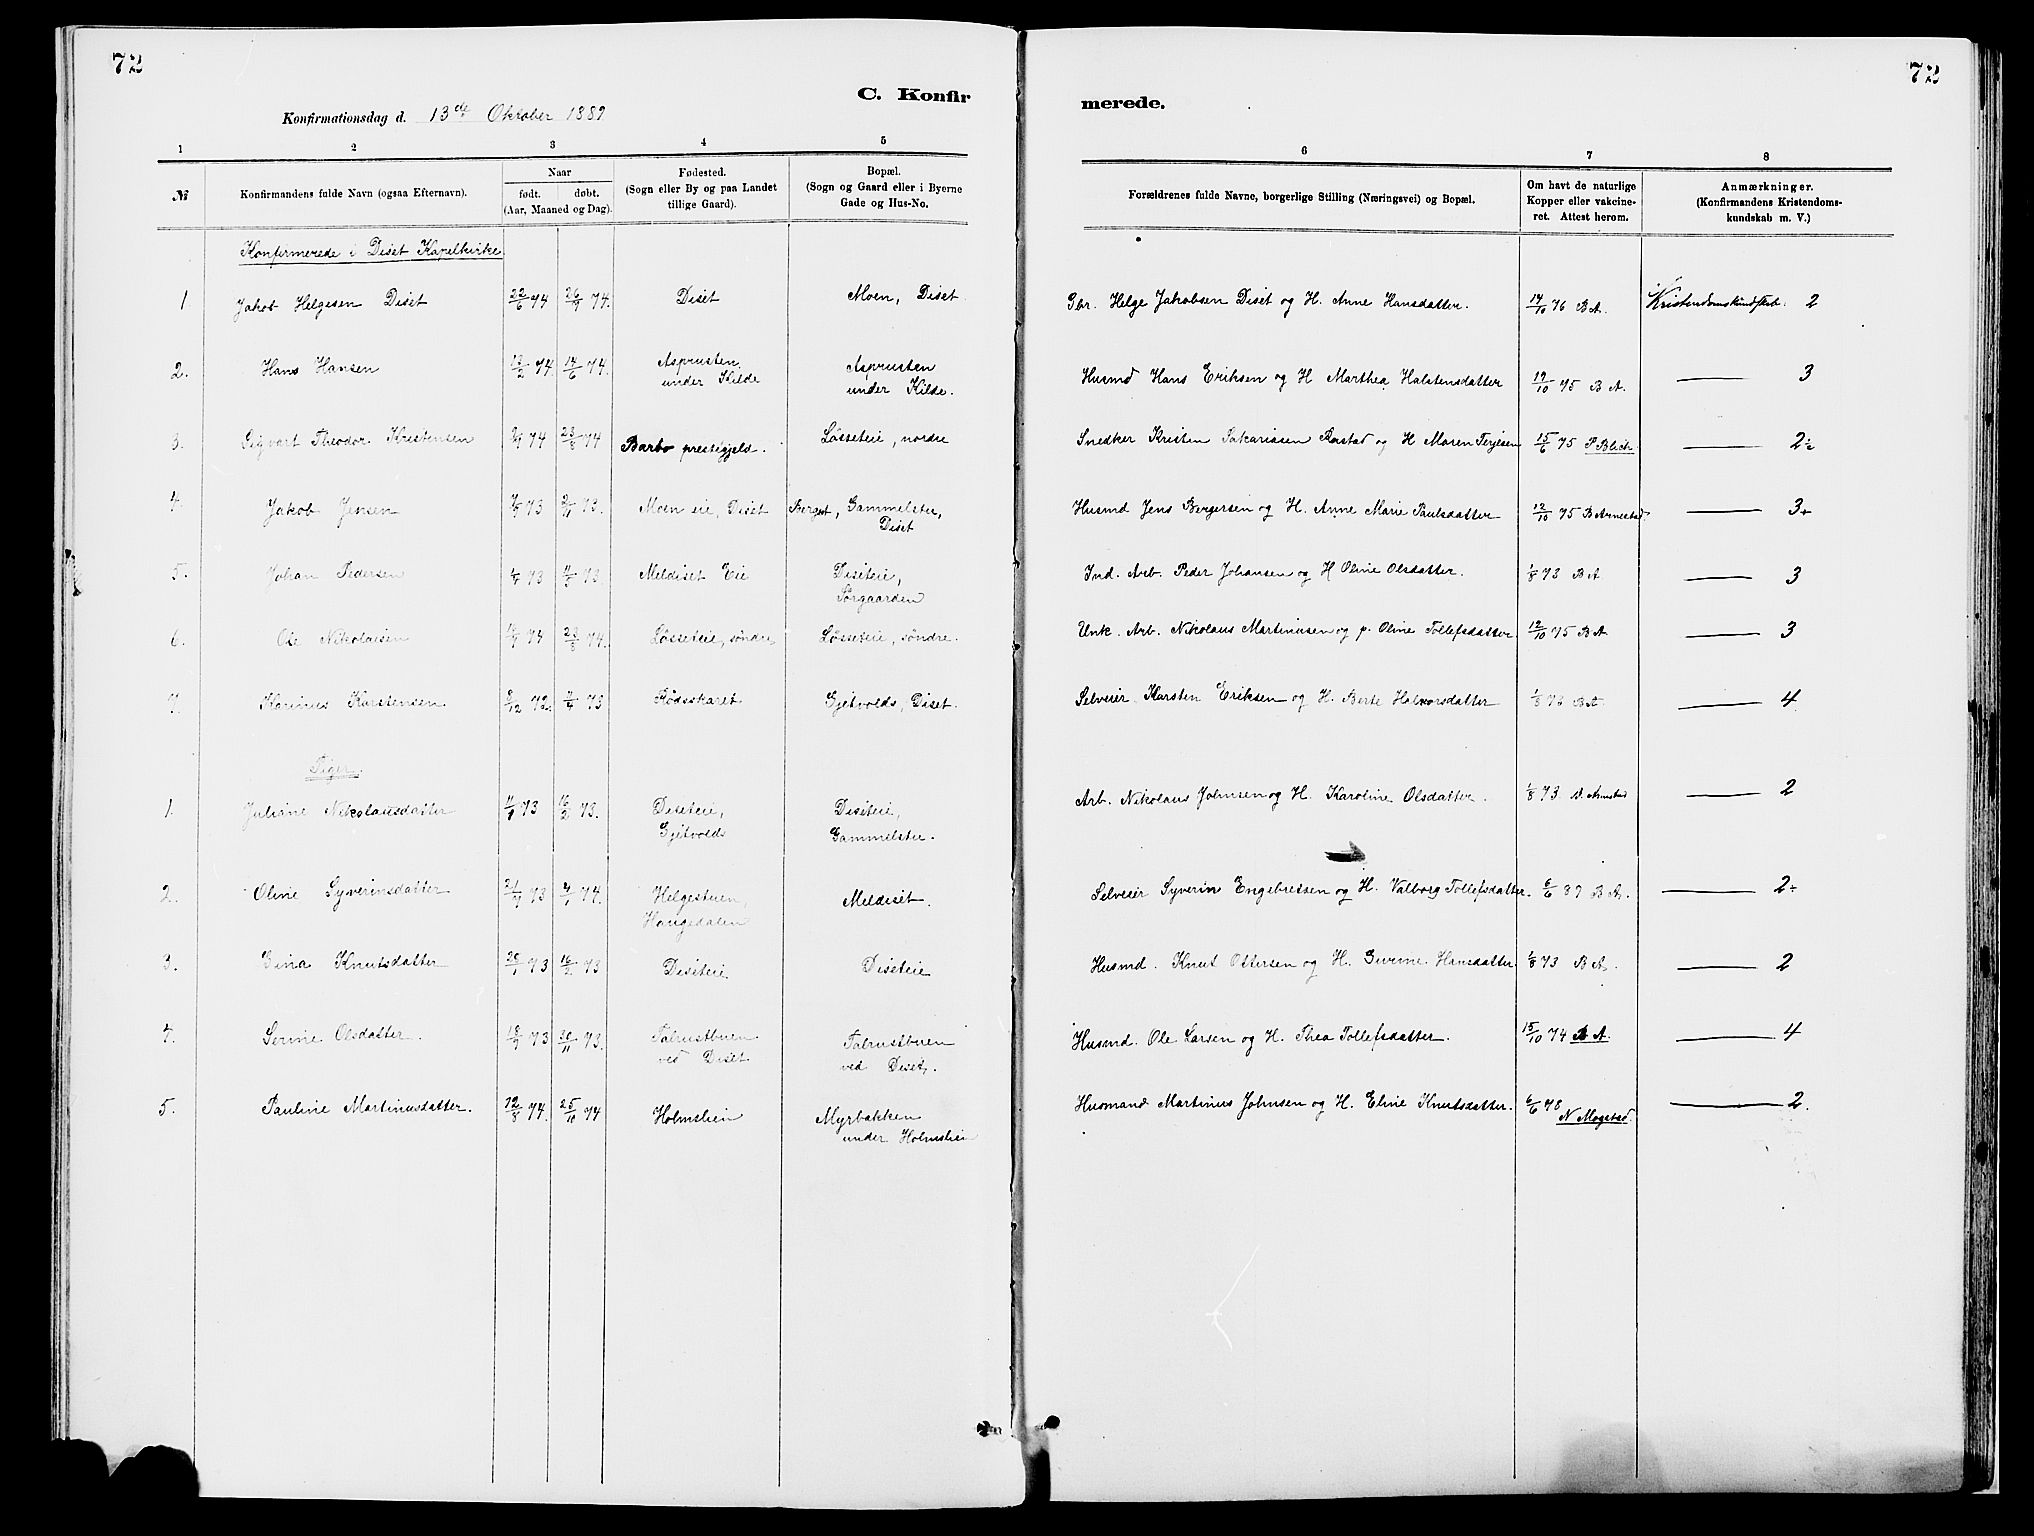 72
72
C. Konfir
merede.
Konfirmationsdag d. 13de Oktober 1889
1 2 3 4 5
6 7 8
№ Konfirmandens fulde Navn (ogsaa Efternavn). Naar født. døbt. (Aar, Maaned og Dag). Fødested. (Sogn eller By og paa Landet tillige Gaard). Bopæl. (Sogn og Gaard eller i Byerne Gade og Hus-No.
Forældrenes fulde Navne, borgerlige Stilling (Næringsvei) og Bopæl. Om havt de naturlige Kopper eller vakcineret. Attest herom. Anmærkninger. (Konfirmandens Kristendomskundskab m. V.)
Konfirmerede i Diset Kapelkirke
1 Jakob Helgesen Diset 22/6 74 26/7 74. Diset Moen, Diset. Gbr. Helge Jakobsen Diset og H. Anne Hansdatter. 17/10 76 B A. Kristendomskundskab. 2
2. Hans Hansen 13/2 74. 14/6 74. Asprusten under Kilde Asprusten under Kilde. Husmd Hans Eriksen og H Marthea Halstensdatter 19/10 75 B A. — 3
3. Sigvart Theodor Kristensen 74 23/8 74 Barbo prestegjeld. Løsseteie, nordre Snedker Kristen Sakariasen Rastad og H Maren Terjesen 15/6 75 P Blich. — 2÷
4. Jakob Jensen 73 73. Moen eie, Diset Berget, Gammelstu, Diset Husmd Jens Bergersen og H. Anne Marie Paulsdatter 12/10 75 B Arnestad — 3+
5. Johan Pedersen 73 73. Meldiset Eie Diseteie, Sørgaarden Ind. Arb. Peder Johansen og H Oline Olsdatter. 1/8 73 B A — 3
6. Ole Nikolaisen 74 23/8 74. Løsseteie, søndre, Løsseteie, søndre. Unk. Arb. Nikolaus Martinusen og p. Oline Tollefsdatter. 12/10 75 B A — 3
7. Karinus Karstensen 72. 73 Rødsskaret Gjetvolds, Diset. Selveier Karsten Eriksen og H. Berte Halvorsdatter 1/8 73 B A. — 4
Piger.
1. Juliane Nikolausdatter 73 16/2 73. Diseteie, Gjetvolds Diseteie, Gammelstu. Arb. Nikolaus Johnsen og H. Karoline Olsdatter. 1/8 73. Arnestad — 2
2. Oline Syverinsdatter 73 74. Helgestuen, Haugedalen Meldiset. Selveier Syverin Engebretsen og H. Valborg Tollefsdatter. 6/6 89 B A. — 2÷
3. Gina Knutsdatter 73 16/2 73 Diseteie Diseteie Husmd. Knut Ottersen og H. Hansdatter. 1/8 73 B A. — 2
4. Serine Olsdatter. 18/9 73 30/11 73. Falrustbuen ved Diset Falrustbuen ved Diset. Husmd. Ole Larsen og H. Thea Tollefsdatter. 15/10 74 B A. — 4
5. Pauline Martinusdatter. 12/8 74. 25/10 74 Holmslien Myrbakken under Holmslien Husmand Martinus Johnsen og H. Eline Knutsdatter. 6/6 78 N Mogstad. — 2.